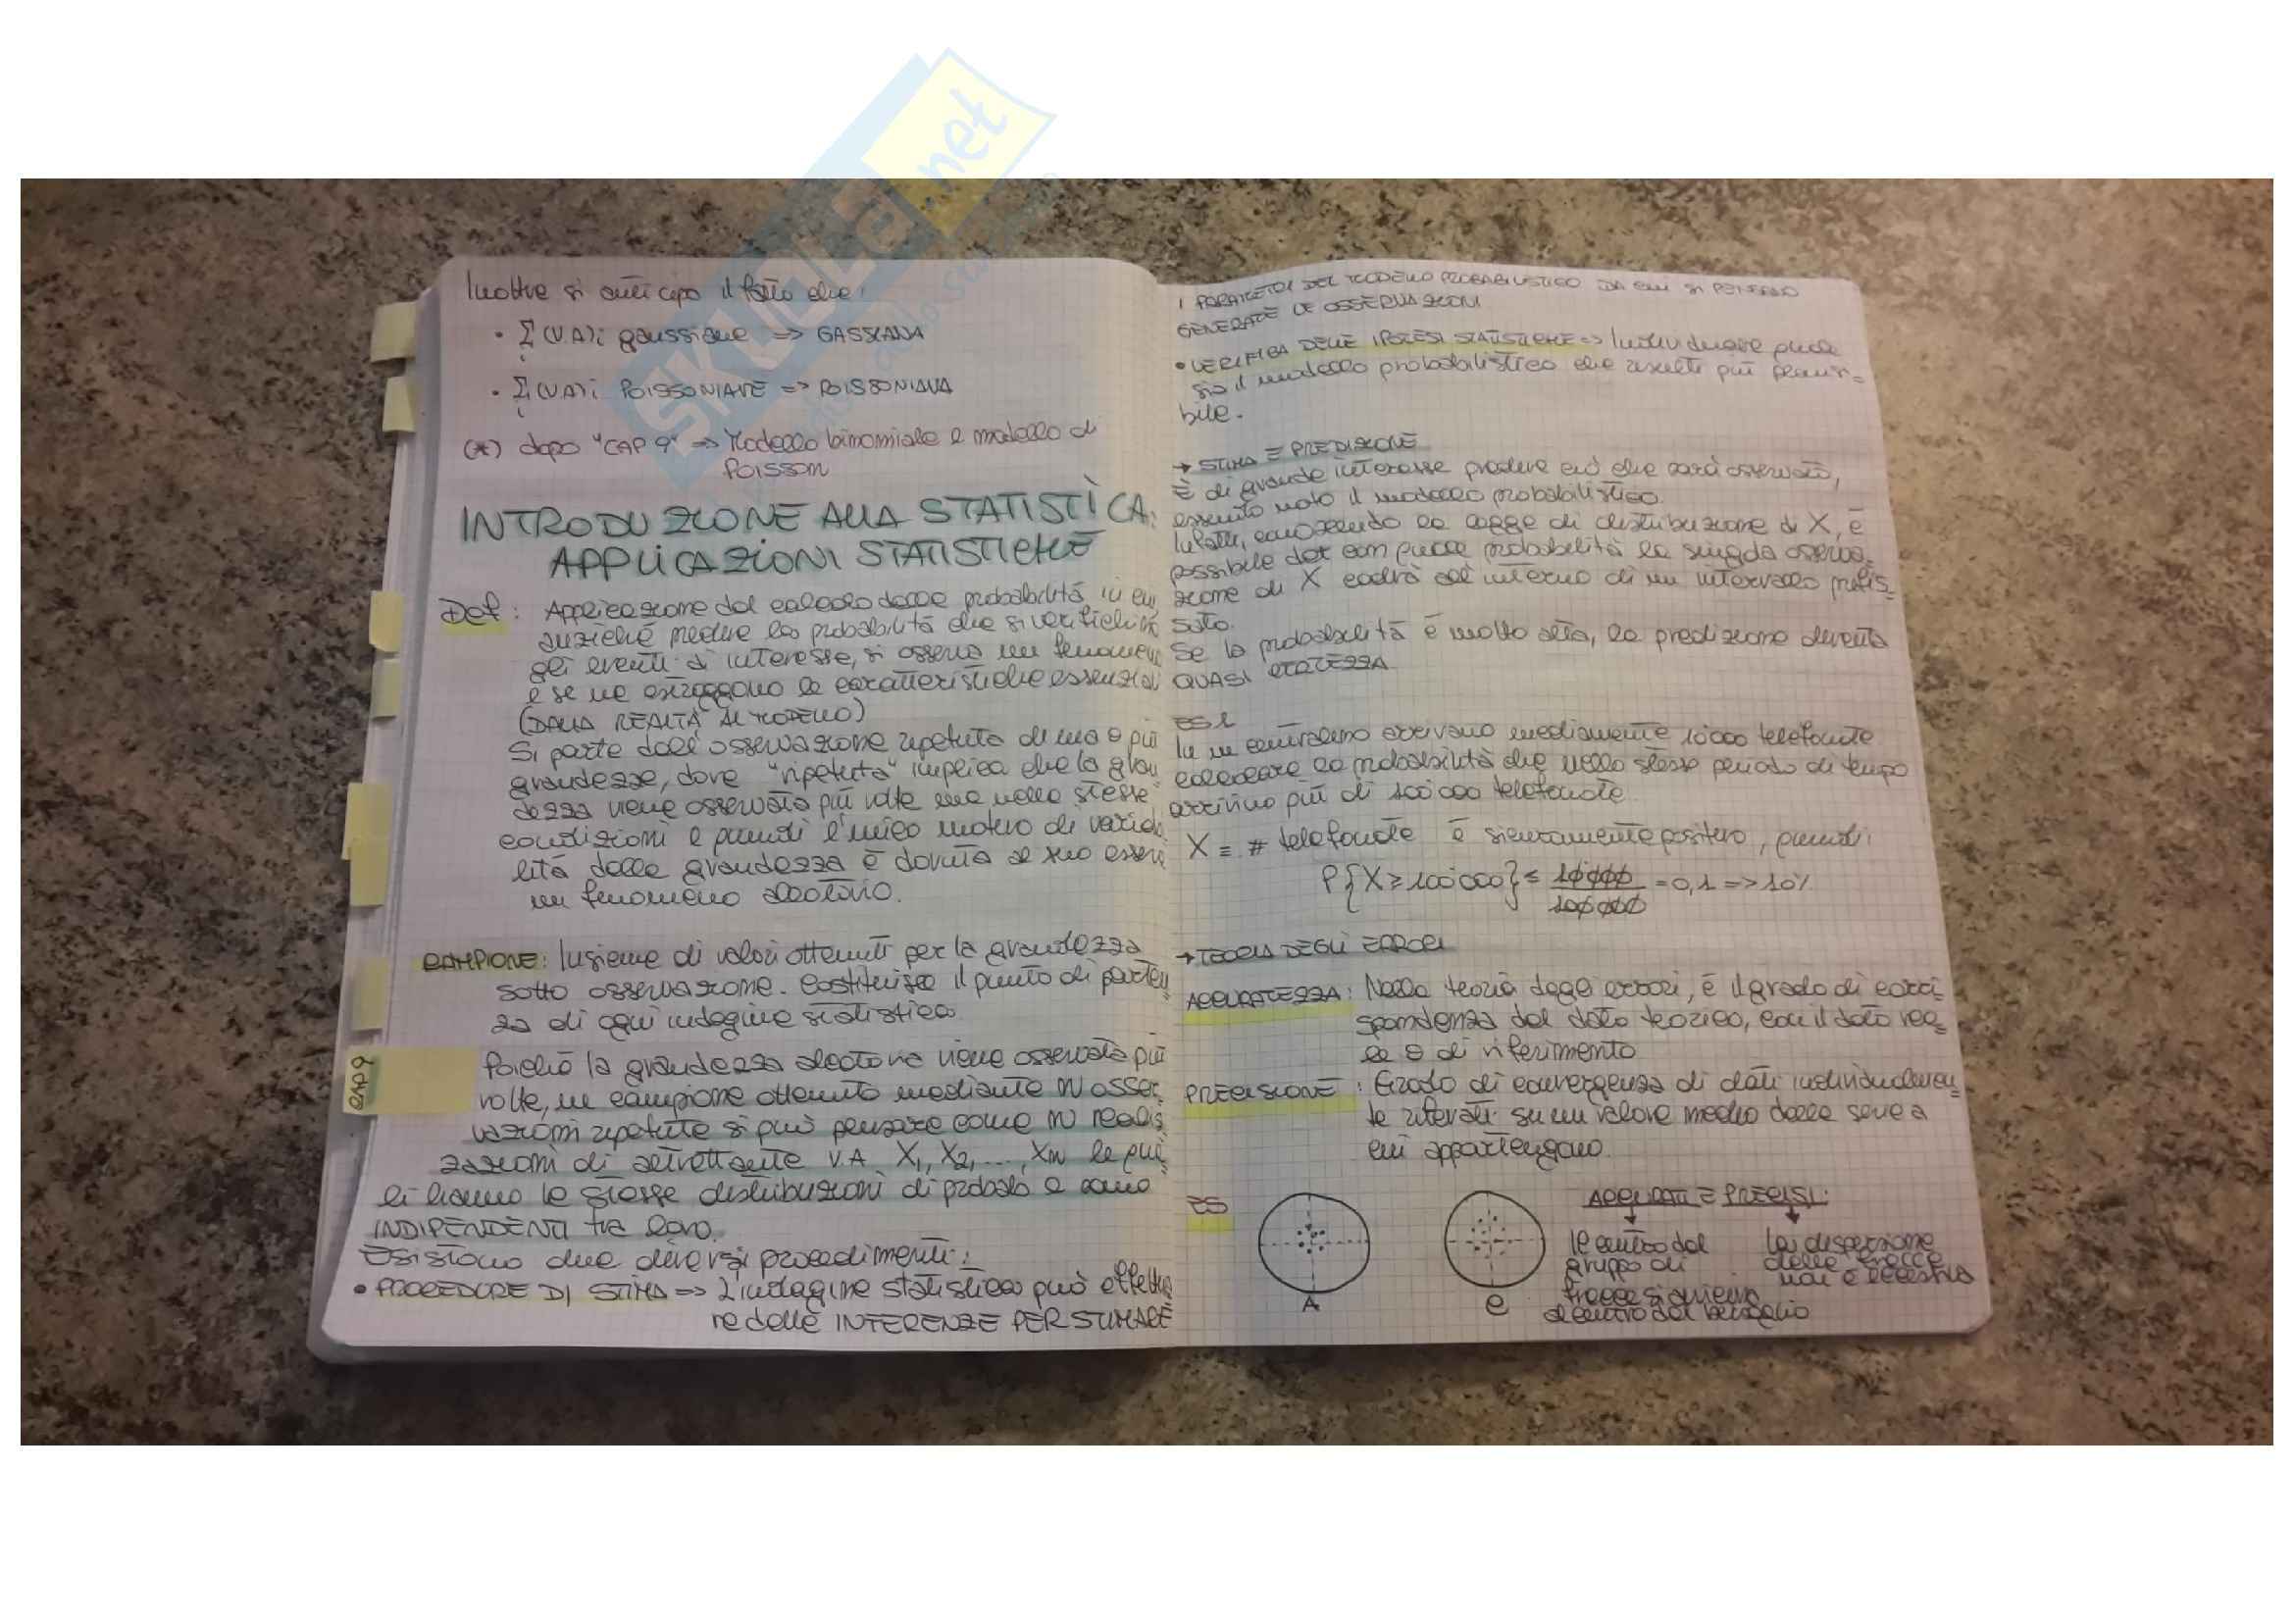 Inoltre si anticipa il fatto che:
• Σi (V.A)i gaussiane => GASSIANA
• Σi (V.A)i POISSONIANE => POISSONIANA
(*) dopo "CAP 9" => Modello binomiale e modello di
POISSON
INTRODUZIONE ALLA STATISTICA:
APPLICAZIONI STATISTICHE
Def: Applicazione del calcolo delle probabilità in cui
anziché predire la probabilità che si verifichino
gli eventi di interesse, si osserva un fenomeno
e se ne estraggono le caratteristiche essenziali
(DALLA REALTÀ AL MODELLO)
Si parte dall'osservazione ripetuta di una o più
grandezze, dove "ripetuta" implica che la gran
dezza viene osservata più volte ma nelle stesse
condizioni e quindi l'unico motivo di variabi
lità della grandezza è dovuta al suo essere
un fenomeno aleatorio.
CAMPIONE: Insieme di valori ottenuti per la grandezza
sotto osservazione. Costituisce il punto di parten
za di ogni indagine statistica.
CAP 9
Poiché la grandezza aleatoria viene osservata più
volte, un campione ottenuto mediante N osser
vazioni ripetute si può pensare come N realiz
zazioni di altrettante V.A X1, X2, ..., XN le qua
li hanno le stesse distribuzioni di probab e sono
INDIPENDENTI tra loro.
Esistono due diversi procedimenti:
• PROCEDURE DI STIMA => L'indagine statistica può effettua
re delle INFERENZE PER STIMARE
I PARAMETRI DEL MODELLO PROBABILISTICO DA CUI SI PENSANO
GENERATE LE OSSERVAZIONI
• VERIFICA DELLE IPOTESI STATISTICHE => Individuare quale
sia il modello probabilistico che risulti più plausi-
bile.
→ STIMA E PREDIZIONE
È di grande interesse predire ciò che sarà osservato,
essento noto il modello probabilistico.
Infatti, conoscendo la legge di distribuzione di X, è
possibile det con quale probabilità la singola osserva-
zione di X cadrà all'interno di un intervallo prefis-
sato.
Se la probabilità è molto alta, la predizione diventa
QUASI CERTEZZA
ES 1
In un centralino arrivano mediamente 10'000 telefonate
calcolare la probabilità che nello stesso periodo di tempo
arrivino più di 100'000 telefonate
X ≡ # telefonate è sicuramente positivo, quindi:
P{X ≥ 100'000} ≤ 10000/100000 = 0,1 => 10%
→ TEORIA DEGLI ERRORI
ACCURATEZZA: Nella teoria degli errori, è il grado di corri-
spondenza del dato teorico, con il dato rea-
le o di riferimento
PRECISIONE: Grado di convergenza di dati individualmen
te rilevati su un valore medio della serie a
cui appartengono.
ES
A
C
ACCURATI E PRECISI:
Il centro del
gruppo di
frecce si avvicina
al centro del bersaglio
La dispersione
delle frecce
non è eccessiva
SKUOLA.net